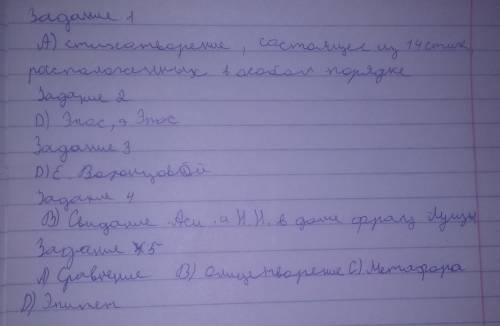 Задание 1
А) стихотворение, состоящее из 14 стих
расположенных в особом порядке
Задание 2
D) Эпос, Эпос
Задание 3
D) Е. Воронцовой
Задание 4
В) Свидание Аси и Н.Н. в доме фрау Луизы
Задание 5
А) Сравнение В) Олицетворение С) Метафора
D) Эпитет